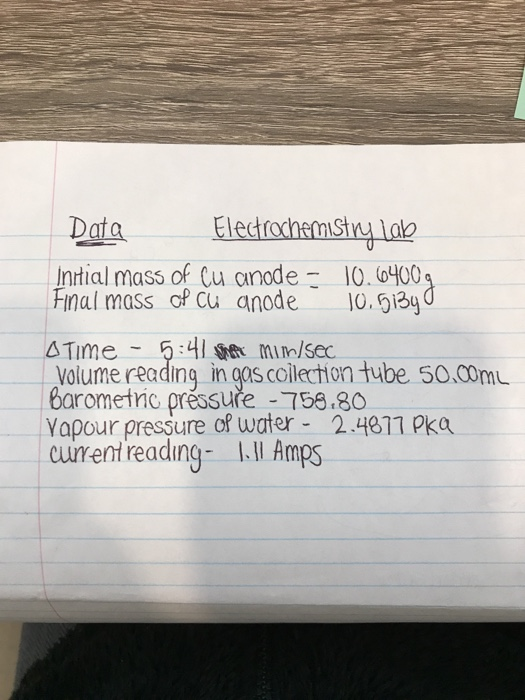 Data Electrochemistry lab
Initial mass of Cu anode = 10.6400g
Final mass of cu anode 10.513g
Δ Time - 5:41 mim/sec
Volume reading in gas collection tube 50.00mL
Barometric pressure - 758.80
Vapour pressure of water - 2.4877 Pka
current reading - 1.11 Amps